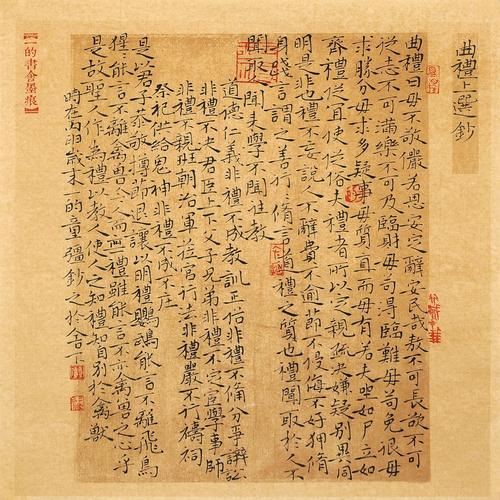 曲禮上選鈔
曲禮曰毋不敬儼若思安定辭安民哉敖不可長欲不可
從志不可滿樂不可及臨財毋苟得臨難毋苟免很毋
求勝分毋求多疑事毋質直而毋有若夫坐如尸立如
齊禮從宜使從俗夫禮者所以定親疏決嫌疑別異同
明是非也禮不妄說人不辭費不逾節不侵侮不好狎脩
身踐言謂之善行行脩言道禮之質也禮聞取於人不
聞取聞來學不聞往教
道德仁義非禮不成教訓正俗非禮不備分爭辨訟
非禮不決君臣上下父子兄弟非禮不定宦學事師
非禮不親班朝治軍蒞官行法非禮嚴不行禱祠
祭祀供給鬼神非禮不成不莊
是以君子恭敬撙節退讓以明禮鸚鵡能言不離飛鳥
猩猩能言不離禽獸今人而無禮雖能言不亦禽獸之心乎
是故聖人作為禮以教人使人知禮知自別於禽獸
時在丙申歲末一的童彊鈔之於舍下
【一的書會墨痕】